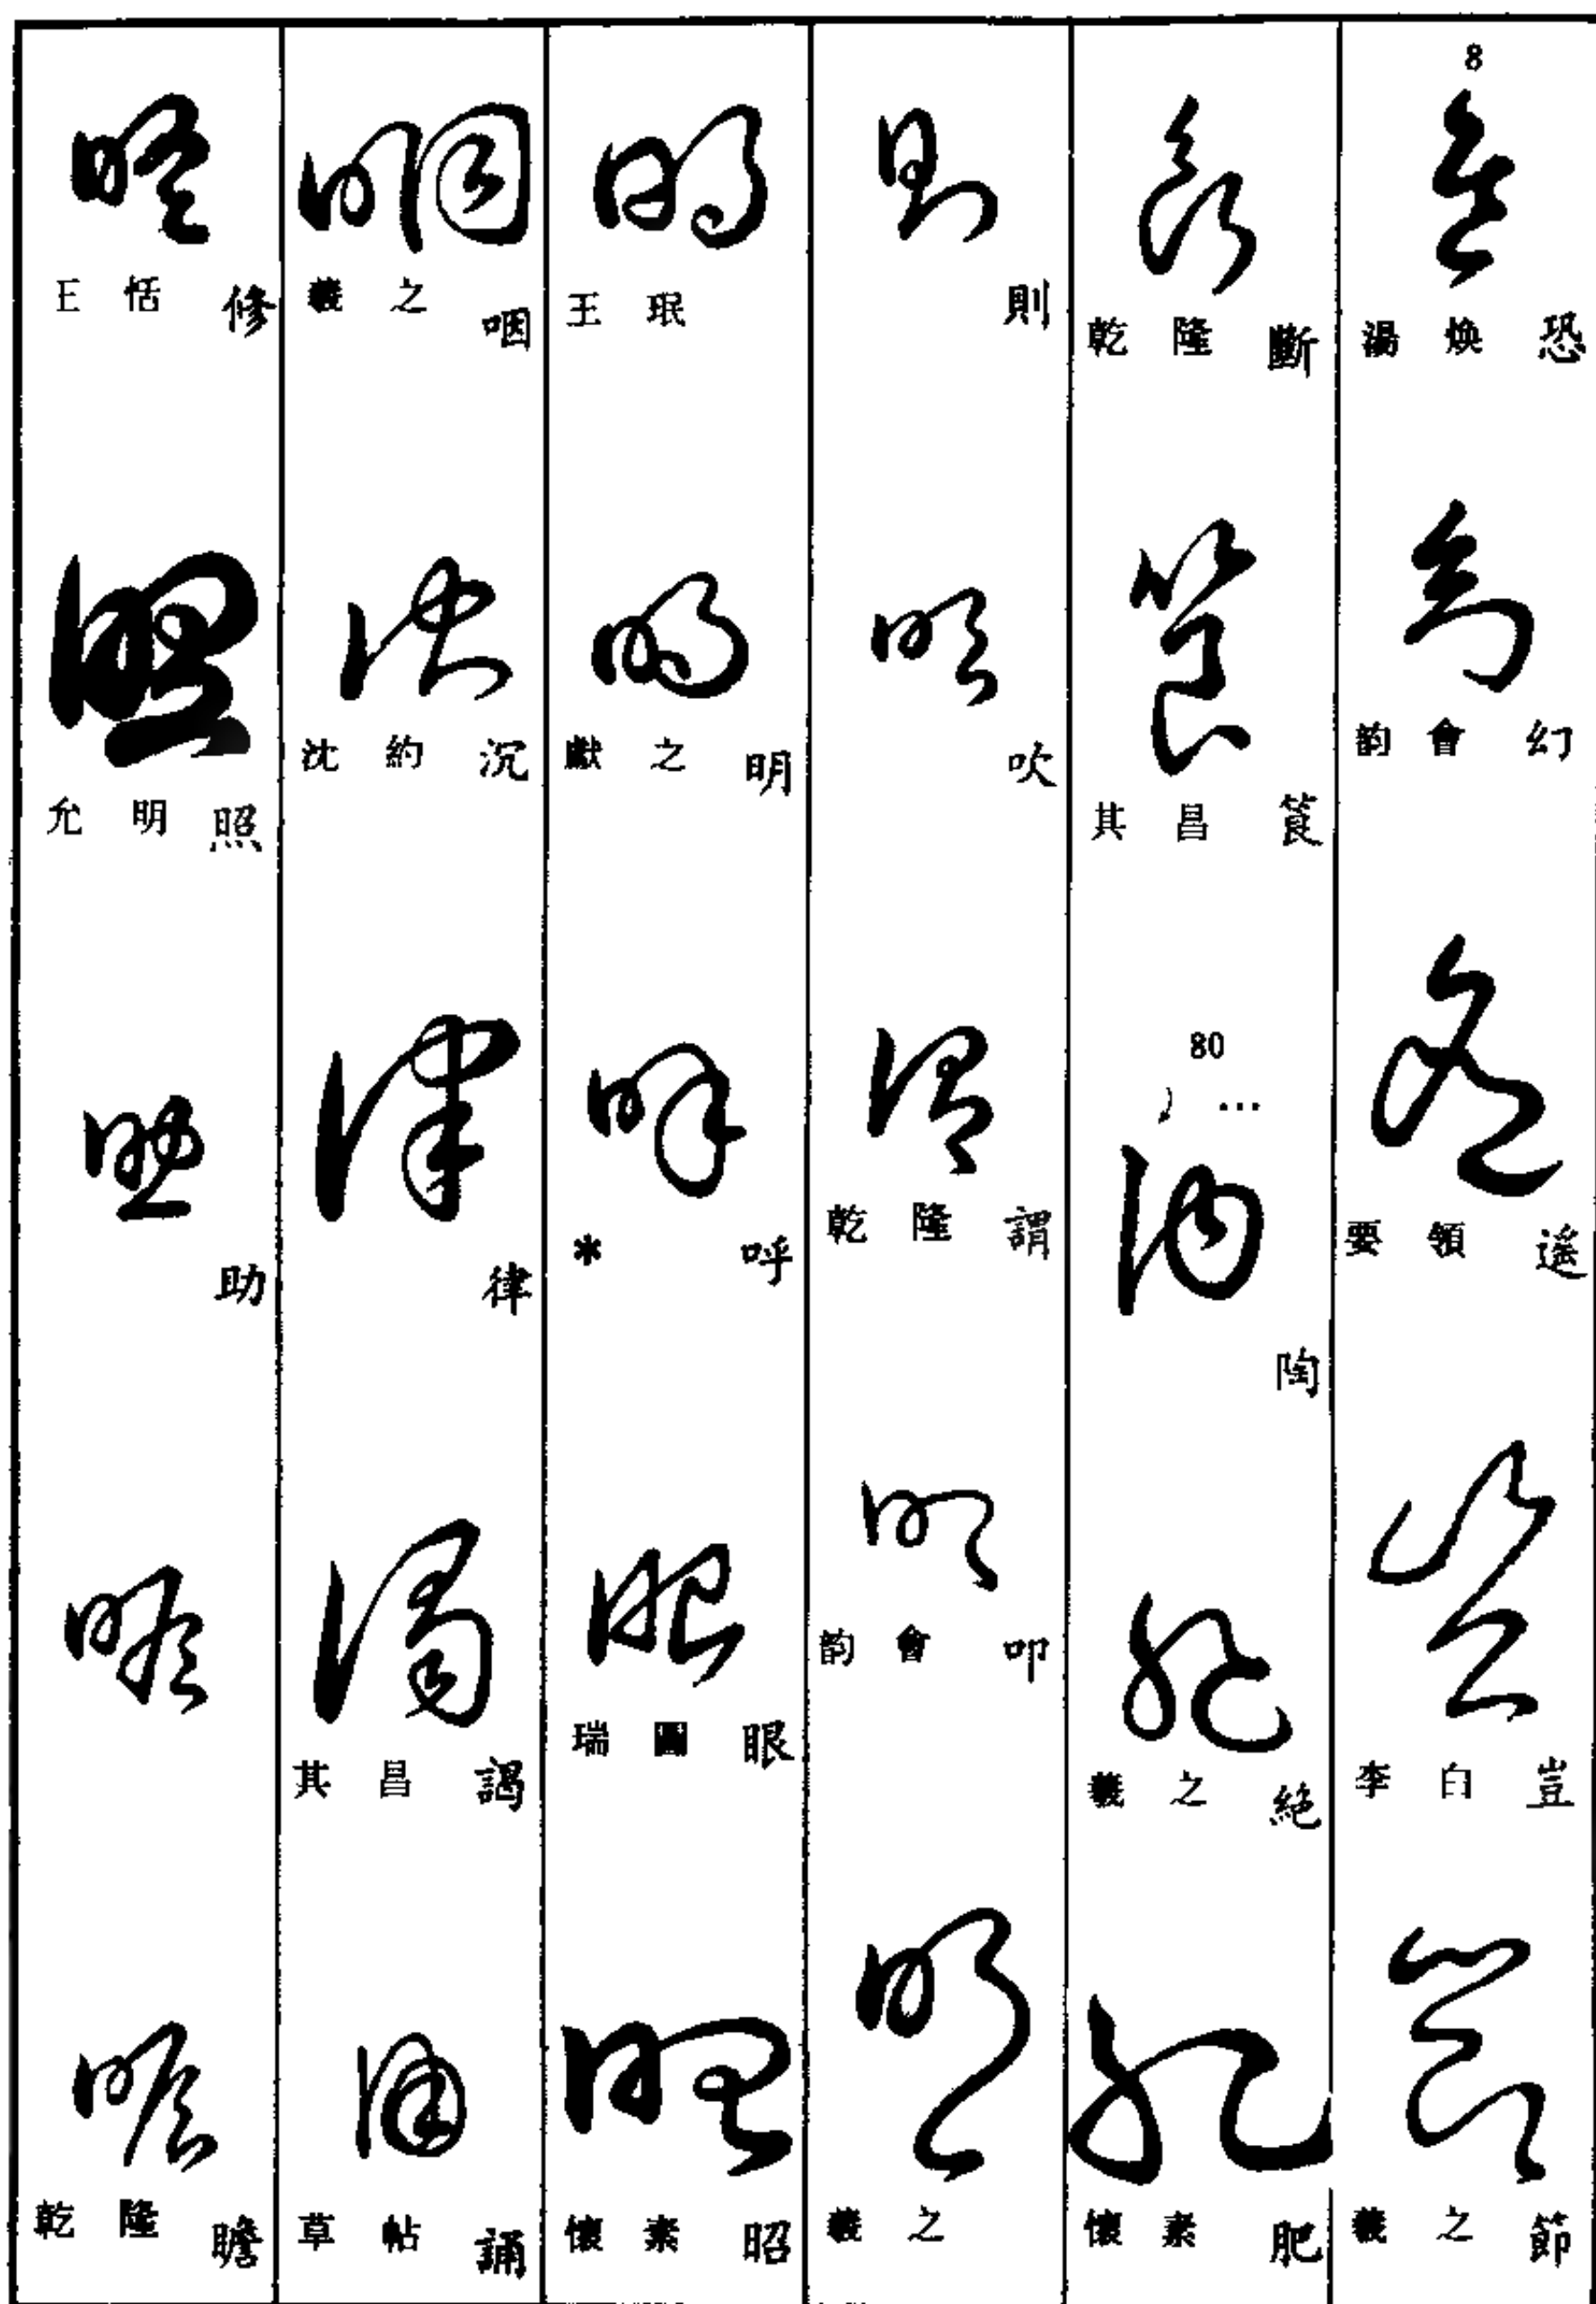 8
湯煥 恐
韵會 幻
要領 遙
李白 豈
羲之 節
乾隆 斷
其昌 筤
80
陶
羲之 絕
懷素 肥
則
吹
乾隆 謂
韵會 叩
羲之
王珉
獻之 明
* 呼
瑞圖 眼
懷素 昭
羲之 咽
沈約 沉
律
其昌 謁
草帖 誦
王恬 修
允明 照
助
乾隆 瞻